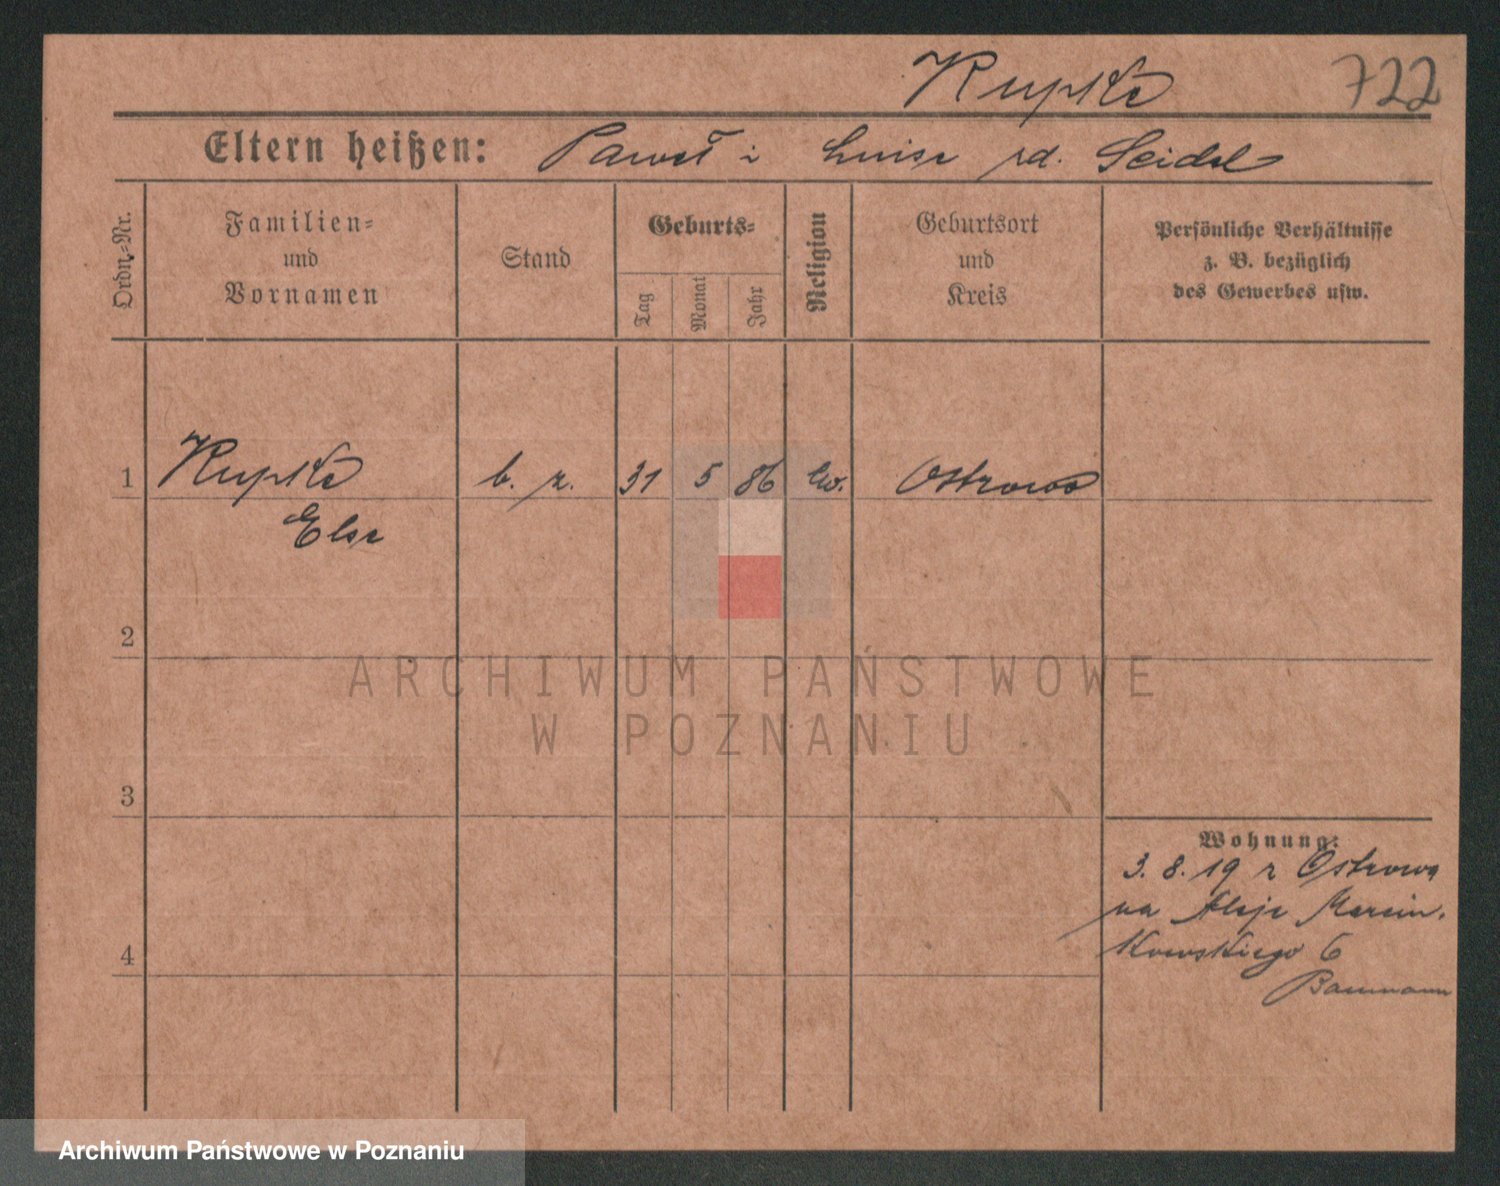 Rupke 722
Eltern heißen: Paweł i Luise rd. Seidel
Ordn.-Nr.
Familien-
und
Vornamen
Stand
Geburts-
Tag
Monat
Jahr
Religion
Geburtsort
und
Kreis
Persönliche Verhältnisse
z. B. bezüglich
des Gewerbes usw.
1 Rupke b. z. 31 5 86 Ew. Ostrowo
Else
2
ARCHIWUM PAŃSTWOWE
W POZNANIU
3
Wohnung:
3. 8. 19 z Ostrowa
na Aleje Marcin.
4 kowskiego 6
Baumann
Archiwum Państwowe w Poznaniu